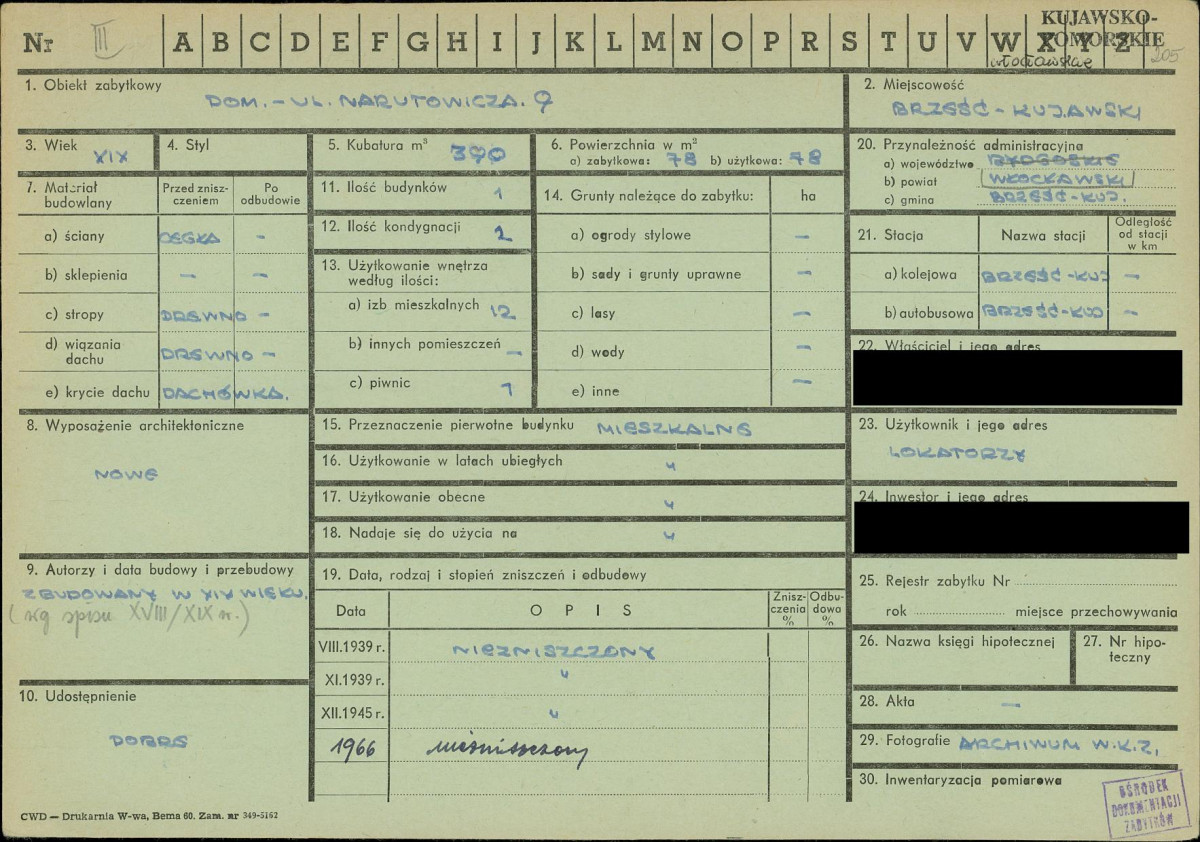 Nr III A B C D E F G H I J K L M N O P R S T U V W X Y Z
KUJAWSKO-
POMORSKIE
włocławskie
205
1. Obiekt zabytkowy
DOM. – UL. NARUTOWICZA. 9
2. Miejscowość
BRZEŚĆ – KUJAWSKI
3. Wiek
XIX
4. Styl
5. Kubatura m³
390
6. Powierzchnia w m²
a) zabytkowa: 78 b) użytkowa: 78
20. Przynależność administracyjna
a) województwo BYDGOSKIE
b) powiat WŁOCŁAWSKI
c) gmina BRZEŚĆ-KUJ.
7. Materiał budowlany
Przed zniszczeniem
Po odbudowie
a) ściany CEGŁA –
b) sklepienia – –
c) stropy DREWNO –
d) wiązania dachu DREWNO –
e) krycie dachu DACHÓWKA.
11. Ilość budynków 1
12. Ilość kondygnacji 2
13. Użytkowanie wnętrza
według ilości:
a) izb mieszkalnych 12
b) innych pomieszczeń –
c) piwnic 1
14. Grunty należące do zabytku: ha
a) ogrody stylowe –
b) sady i grunty uprawne –
c) lasy –
d) wody –
e) inne –
21. Stacja
Nazwa stacji
Odległość
od stacji
w km
a) kolejowa BRZEŚĆ-KUJ –
b) autobusowa BRZEŚĆ-KUJ –
22. Właściciel i jego adres
8. Wyposażenie architektoniczne
NOWE
15. Przeznaczenie pierwotne budynku MIESZKALNE
16. Użytkowanie w latach ubiegłych "
17. Użytkowanie obecne "
18. Nadaje się do użycia na "
23. Użytkownik i jego adres
LOKATORZY
24. Inwestor i jego adres
9. Autorzy i data budowy i przebudowy
ZBUDOWANY W XIX WIEKU.
(wg spisu XVIII/XIX w.)
19. Data, rodzaj i stopień zniszczeń i odbudowy
Data
O P I S
Zniszczenia %
Odbudowa %
VIII.1939 r. NIEZNISZCZONY
XI.1939 r. "
XII.1945 r. "
1966 niezniszczony
25. Rejestr zabytku Nr
rok miejsce przechowywania
26. Nazwa księgi hipotecznej
27. Nr hipoteczny
10. Udostępnienie
DOBRE
28. Akta –
29. Fotografie ARCHIWUM W.K.Z.
30. Inwentaryzacja pomiarowa
OŚRODEK
DOKUMENTACJI
ZABYTKÓW
CWD — Drukarnia W-wa, Bema 60. Zam. nr 349-5162